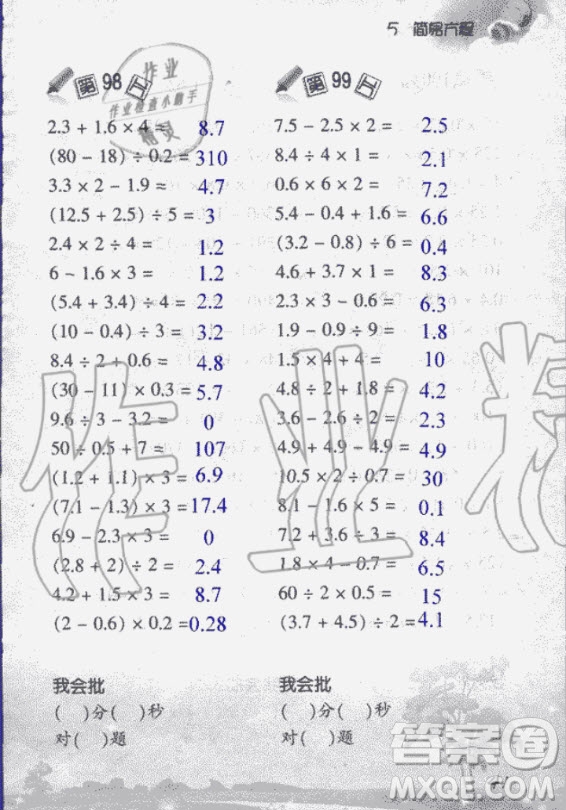 5 简易方程
第98日
2.3 + 1.6 × 4 = 8.7
(80 − 18) ÷ 0.2 = 310
3.3 × 2 − 1.9 = 4.7
(12.5 + 2.5) ÷ 5 = 3
2.4 × 2 ÷ 4 = 1.2
6 − 1.6 × 3 = 1.2
(5.4 + 3.4) ÷ 4 = 2.2
(10 − 0.4) ÷ 3 = 3.2
8.4 ÷ 2 + 0.6 = 4.8
(30 − 11) × 0.3 = 5.7
9.6 ÷ 3 − 3.2 = 0
50 ÷ 0.5 + 7 = 107
(1.2 + 1.1) × 3 = 6.9
(7.1 − 1.3) × 3 = 17.4
6.9 − 2.3 × 3 = 0
(2.8 + 2) ÷ 2 = 2.4
4.2 + 1.5 × 3 = 8.7
(2 − 0.6) × 0.2 = 0.28
我会批
( )分( )秒
对( )题
第99日
7.5 − 2.5 × 2 = 2.5
8.4 ÷ 4 × 1 = 2.1
0.6 × 6 × 2 = 7.2
5.4 − 0.4 + 1.6 = 6.6
(3.2 − 0.8) ÷ 6 = 0.4
4.6 + 3.7 × 1 = 8.3
2.3 × 3 − 0.6 = 6.3
1.9 − 0.9 ÷ 9 = 1.8
1.5 × 4 + 4 = 10
4.8 ÷ 2 + 1.8 = 4.2
3.6 − 2.6 ÷ 2 = 2.3
4.9 + 4.9 − 4.9 = 4.9
10.5 × 2 ÷ 0.7 = 30
8.1 − 1.6 × 5 = 0.1
7.2 + 3.6 ÷ 3 = 8.4
1.8 × 4 − 0.7 = 6.5
60 ÷ 2 × 0.5 = 15
(3.7 + 4.5) ÷ 2 = 4.1
我会批
( )分( )秒
对( )题
作业
作业检查小助手
精灵
作业精
答案卷
MXQE.COM